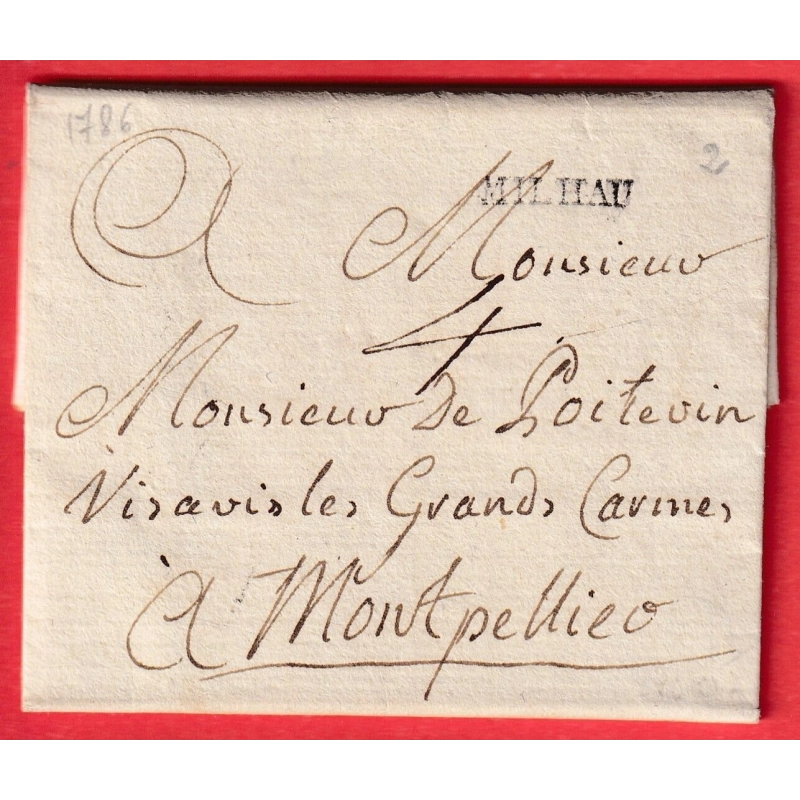 1786
2
MILHAU
A Monsieur
4
Monsieur De Poitevin
Visavis les Grands Carmes
à Montpellier